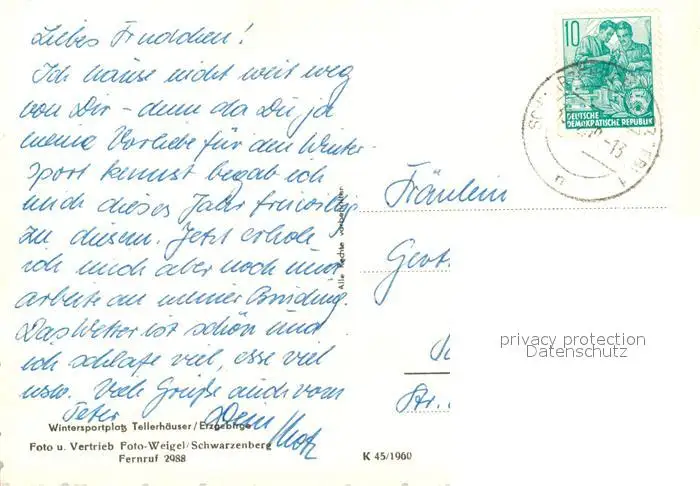 Liebes Frudchen!
Ich hause nicht weit weg
von Dir - denn da Du ja
meine Vorliebe für den Winter-
sport kennst begab ich
mich dieses Jahr freiwillig
zu diesem. Jetzt erhole
ich mich aber noch und
arbeite an meiner Bräunung.
Das Wetter ist schön und
ich schlafe viel, esse viel
usw. Viele Grüße auch vom
Peter Dein
Wintersportplatz Tellerhäuser/Erzgebirge
Foto u. Vertrieb Foto-Weigel/Schwarzenberg
Fernruf 2988
Alle Rechte vorbehalten
K 45/1960
10
DEUTSCHE
DEMOKRATISCHE REPUBLIK
Fräulein
Gert.
Str.
privacy protection
Datenschutz